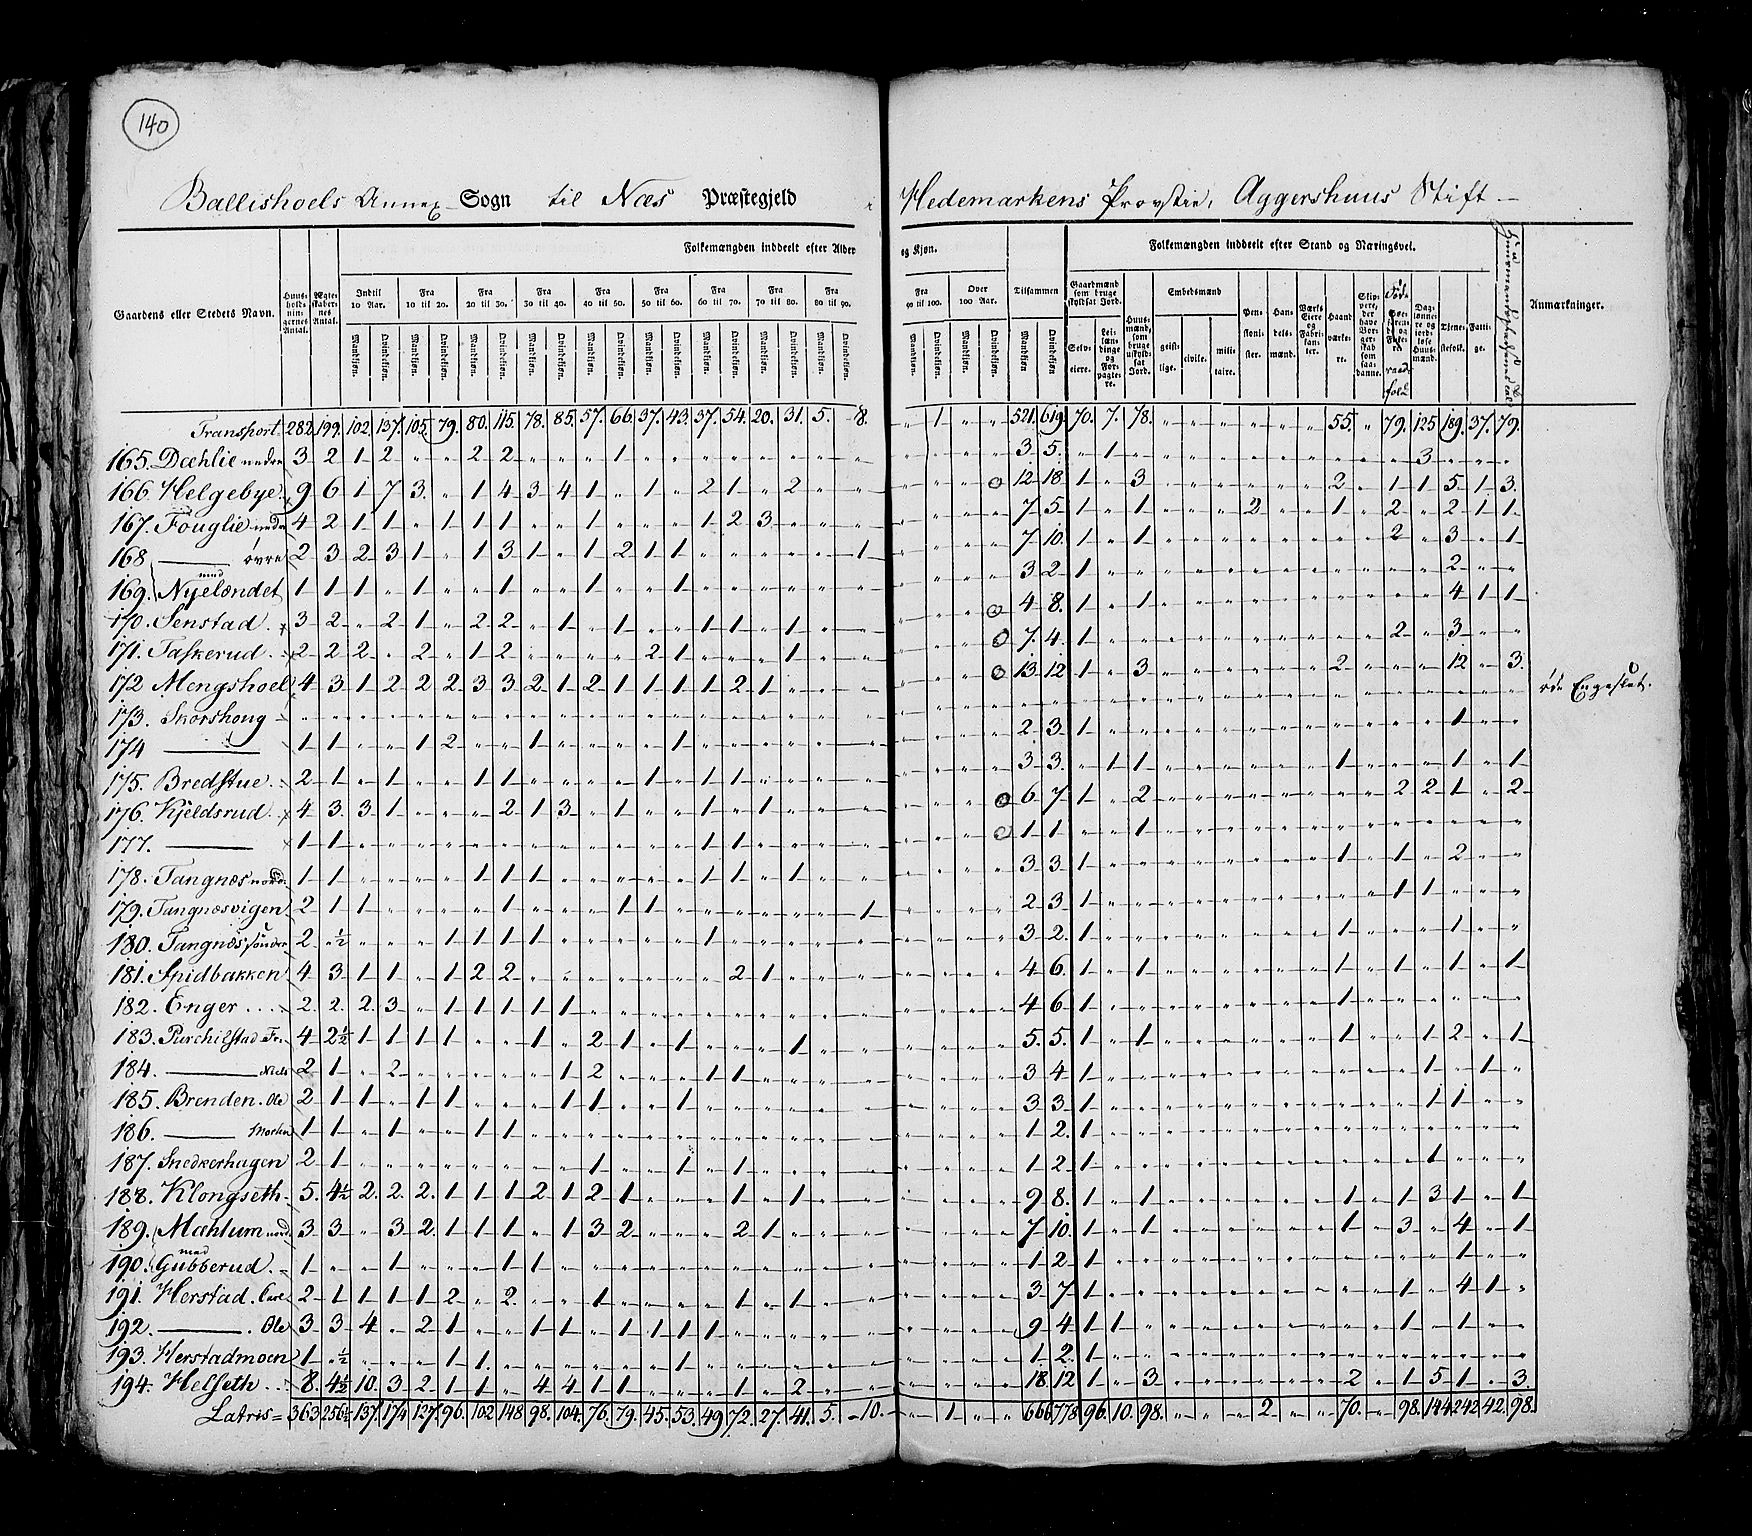 140
Ballishoels Annex Sogn til Næs Præstegjeld Hedemarkens Provstie, Aggershuus Stift
Folkemængden inddeelt efter Alder og Kjøn. Folkemængden inddeelt efter Stand og Næringsvei.
Gaardens eller Stedets Navn. Huusholdningernes Antal. Ægteskabernes Antal.
Indtil 10 Aar. Fra 10 til 20. Fra 20 til 30. Fra 30 til 40. Fra 40 til 50. Fra 50 til 60. Fra 60 til 70. Fra 70 til 80. Fra 80 til 90. Fra 90 til 100. Over 100 Aar. Tilsammen
Mandkjøn. Qvindekjøn.
Gaardmænd som bruge skyldsat Jord. Selveiere. Leilændinge og Forpagtere. Huusmænd, som bruge uskyldsat Jord. Embedsmænd geistlige. civile. militaire. Pensionister. Handelsmænd. Værks Eiere og Fabrikanter. Haandværkere. Daglønnere og jordløse Huusmænd. Tjenestefolk. Fattige. Anmærkninger.
Transport 282 199. 102. 137. 105. 79. 80. 115. 78. 85. 57. 66. 37. 43. 37. 54. 20. 31. 5. 8. 1 521 619 70. 7. 78. 55. 79. 125 189. 37. 79.
165. Dæhlie nedre 3 2 1 2 2 2 1 3 5. 1 3
166. Helgebye 9 6 1 7 3 1 4 3 4 1 1 2 1 2 12 18. 1 3 2 1 1 5 1 3
167. Fouglie nedre 4 2 1 1 1 1 1 1 1 2 3 7 5 1 1 2 1 2 2 1 1
168 øvre 2 3 2 3 1 1 3 1 1 2 1 1 1 7 10. 1 1 2 3 1
169. med Nyelændet 1 1 1 1 1 1 1 3 2 1 2
170. Senstad 3 2 2 1 2 2 1 1 1 1 1 4 8. 1 1 4 1 1
171. Taskerud 2 2 2 2 1 2 2 1 1 7. 4. 1 2 3
172 Mengshoel 4 3 1 2 2 2 3 3 2 1 2 1 1 1 1 2 1 13 12 1 3 2 12 3. øde Engeslet.
173. Skorshong
174 1 1 1 2 1 1 2 3 1 1
175. Bredstue 2 1 1 1 1 1 1 1 3 3. 1 1 1 1 1
176. Kjeldsrud 4 3 3 1 2 1 3 1 1 1 6 7 1 2 2 2 1 2
177. 1 1 1 1 1 1 1
178. Tangnæs nord. 1 1 1 1 1 1 1 1 3 3 1 1 1 2
179. Tangnæsvigen 2 1 1 1 1 1 1 2 3. 1 1 1
180. Tangnæs sønder 2 ½ 1 1 1 1 1 3 2. 1 1 1
181. Spidbakken 4 3 1 1 1 2 2 2 1 4 6. 1 1 1 1 1 1
182. Enger 2. 2. 2. 3 1 1 1 1 1 4 6 1 1
183. Purchilstad Fr. 4 2½ 1 1 1 1 1 2 1 1 1 5. 5. 1 1 1 1 2 1
184. Niels 2 1 2 1 2 1 1 3 4 1 1 1
185. Brenden. Ole 2 1 1 1 1 1 1 1 3 3 1 1 1
186. Morten 1 1 1 1 1 1 2. 1
187. Snedkerhagen 2 1 1 1 1 1 2 1 1
188. Klongseth 5. 4½ 2. 2. 2. 1 1 1 2 1 2 1 1 1 9 8. 1 1 1 1 3 1 1
189. Mæhlum nord 3 3 3 2 1 1 1 1 3 2 2 1 7 10. 1 1 1 3 4 1
190. med Gubberud 1 1 1 1 1 2. 1 1
191. Herstad. Carl 2 1 1 1 1 2 2. 1 1 1 3 7 1 1 4 1
192. Ole 3 3 4 2 1 1 1 1 1 1 1 9 4 1 1 1 1
193. Herstadmoen 1 ½ 1 1. 1 1 2. 1
194. Helseth 8. 4½ 10. 3 2 1 1 4 4 1 1 1 2 18. 12 1 3 2 1 5 1 3.
Latris = 363 256½ 137. 174 127. 96. 102 148 98. 104. 76. 79. 45. 53. 49 72. 27. 41. 5. 10. 1 666 778 96. 10. 98. 2. 70. 98. 144 242 42. 98.